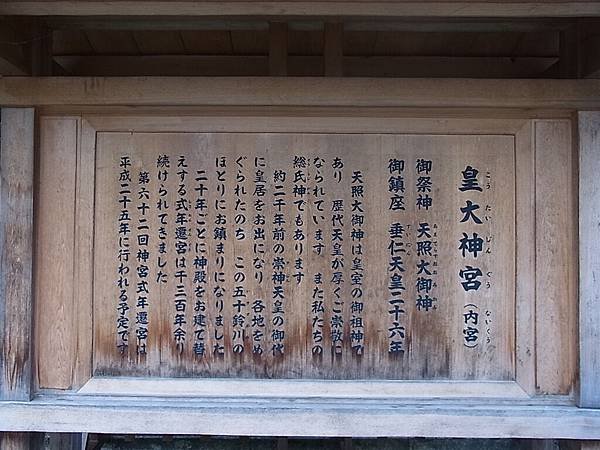 皇大神宮（内宮）
こうたいじんぐう　ないくう
御祭神　天照大御神
あまてらすおおみかみ
御鎮座　垂仁天皇二十六年
すいにん
天照大御神は皇室の御祖神で
あり　歴代天皇が厚くご崇敬に
なられています　また私たちの
総氏神でもあります
約二千年前の崇神天皇の御代
に皇居をお出になり　各地をめ
ぐられたのち　この五十鈴川の
ほとりにお鎮まりになりました
二十年ごとに神殿をお建て替
えする式年遷宮は千三百年余り
続けられてきました
第六十二回神宮式年遷宮は
平成二十五年に行われる予定です